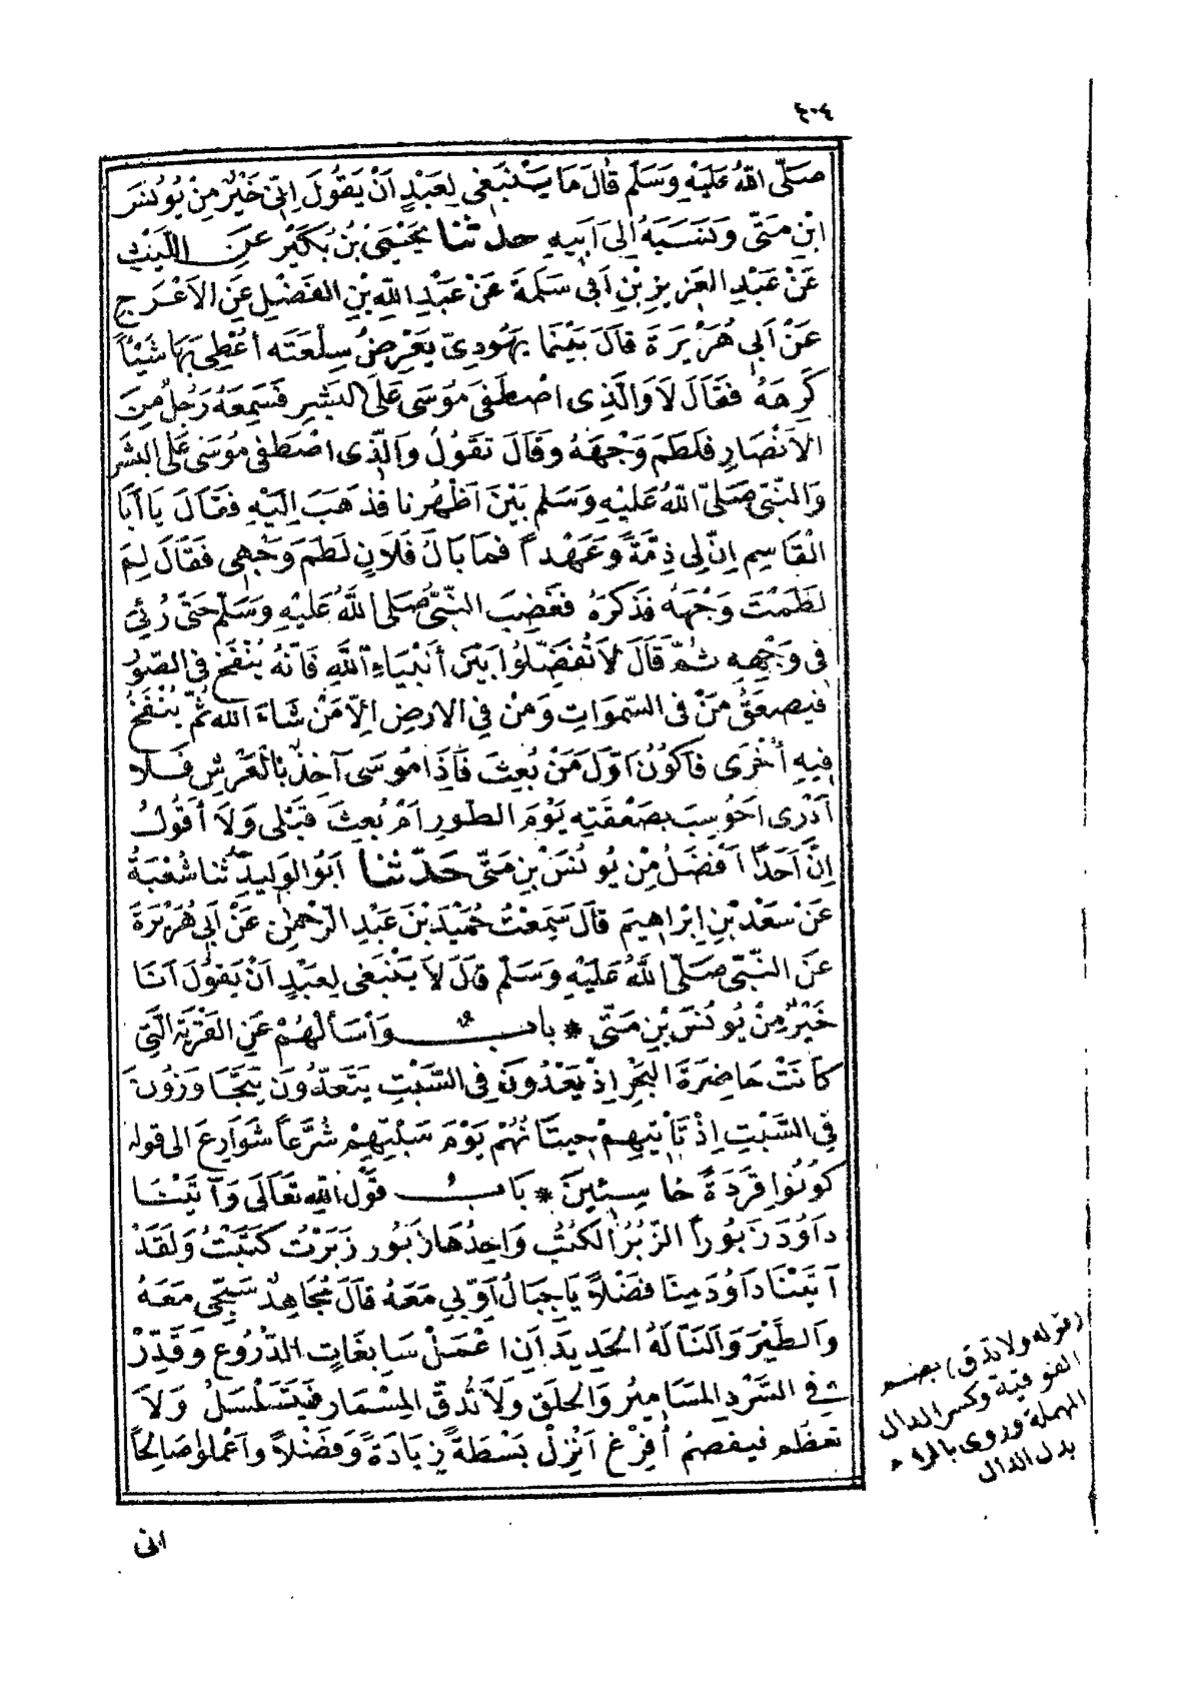 ٤٠٤
صَلَّى اللهُ عَلَيْهِ وَسَلَّمَ قَالَ مَا يَنْبَغِى لِعَبْدٍ اَنْ يَقُولَ اِنِّى خَيْرٌ مِنْ يُونُسَ
ابْنِ مَتَّى وَنَسَبَهُ اِلَى اَبِيهِ حدثنا يَحْيَى بْنُ بُكَيْرٍ عَنِ اللَّيْثِ
عَنْ عَبْدِ العَزِيزِ بْنِ اَبِى سَلَمَةَ عَنْ عَبْدِ اللهِ بْنِ الفَضْلِ عَنِ الاَعْرَجِ
عَنْ اَبِى هُرَيْرَةَ قَالَ بَيْنَمَا يَهُودِىٌّ يَعْرِضُ سِلْعَتَه اُعْطِىَ بِهَا شَيْئاً
كَرِهَهُ فَقَالَ لاَ وَالَّذِى اصْطَفَى مُوسَى عَلَى البَشَرِ فَسَمِعَهُ رَجُلٌ مِنَ
الاَنْصَارِ فَلَطَمَ وَجْهَهُ وَقَالَ تَقُولُ وَالَّذِى اصْطَفَى مُوسَى عَلَى البَشَرِ
وَالنَّبِىُّ صَلَّى اللهُ عَلَيْهِ وَسَلَّمَ بَيْنَ اَظْهُرِنَا فَذَهَبَ اِلَيْهِ فَقَالَ يَا اَبَا
القَاسِمِ اِنَّ لِى ذِمَّةً وَعَهْداً فَمَا بَالُ فُلاَنٍ لَطَمَ وَجْهِى فَقَالَ لِمَ
لَطَمْتَ وَجْهَهُ فَذَكَرَهُ فَغَضِبَ النَّبِىُّ صَلَّى اللهُ عَلَيْهِ وَسَلَّمَ حَتَّى رُئِىَ
فِى وَجْهِهِ ثُمَّ قَالَ لاَ تُفَضِّلُوا بَيْنَ أَنْبِيَاءِ اللهِ فَاِنَّهُ يُنْفَخُ فِى الصُّورِ
فَيَصْعَقُ مَنْ فِى السَّمَوَاتِ وَمَنْ فِى الاَرْضِ اِلاَّ مَنْ شَاءَ اللهُ ثُمَّ يُنْفَخُ
فِيهِ أُخْرَى فَاَكُونُ اَوَّلَ مَنْ بُعِثَ فَاِذَا مُوسَى آخِذٌ بِالْعَرْشِ فَلاَ
اَدْرِى اَحُوسِبَ بِصَعْقَتِهِ يَوْمَ الطُّورِ اَمْ بُعِثَ قَبْلِى وَلاَ أَقُولُ
اِنَّ اَحَدًا اَفْضَلُ مِنْ يُونُسَ بْنِ مَتَّى حَدَّثنا اَبُو الوَلِيدِ ثنا شُعْبَةُ
عَنْ سَعْدِ بْنِ اِبْرَاهِيمَ قَالَ سَمِعْتُ حُمَيْدَ بْنَ عَبْدِ الرَّحْمٰنِ عَنْ اَبِى هُرَيْرَةَ
عَنِ النَّبِىِّ صَلَّى اللهُ عَلَيْهِ وَسَلَّمَ قَالَ لاَ يَنْبَغِى لِعَبْدٍ اَنْ يَقُولَ اَنَا
خَيْرٌ مِنْ يُونُسَ بْنِ مَتَّى * بابٌ وَاَسْأَلْهُمْ عَنِ القَرْيَةِ الَّتِى
كَانَتْ حَاضِرَةَ البَحْرِ اِذْ يَعْدُونَ فِى السَّبْتِ يَتَعَدَّوْنَ يَتَجَاوَزُونَ
فِى السَّبْتِ اِذْ تَأْتِيهِمْ حِيتَانُهُمْ يَوْمَ سَبْتِهِمْ شُرَّعاً شَوَارِعَ الى قوله
كُونُوا قِرَدَةً خَاسِئِينَ * بَابُ قَوْلِ اللهِ تَعَالَى وَآتَيْنَا
دَاوُدَ زَبُوراً الزُّبُرُ الكُتُبُ وَاحِدُهَا زَبُور زَبَرْتُ كَتَبْتُ وَلَقَدْ
آتَيْنَا دَاوُدَ مِنَّا فَضْلاً يَا جِبَالُ اَوِّبِى مَعَهُ قَالَ مُجَاهِدٌ سَبِّحِى مَعَهُ
وَالطَّيْرَ وَاَلَنَّا لَهُ الحَدِيدَ اَنِ اعْمَلْ سَابِغَاتٍ الدُّرُوعَ وَقَدِّرْ
فِى السَّرْدِ المَسَامِيرُ وَالحَلَقِ وَلاَ تُدِقَّ المِسْمَارَ فَيَتَسَلْسَلَ وَلاَ
تُعَظِّم فَيَفْصِمَ أَفْرِغْ اَنْزِلْ بَسْطَةً زِيَادَةً وَفَضْلاً وَاعْمَلُوا صَالِحاً
انى
(قوله ولا تدق) بضم
الفوقية وكسر الدال
المهملة وروى بالراء
بدل الدال